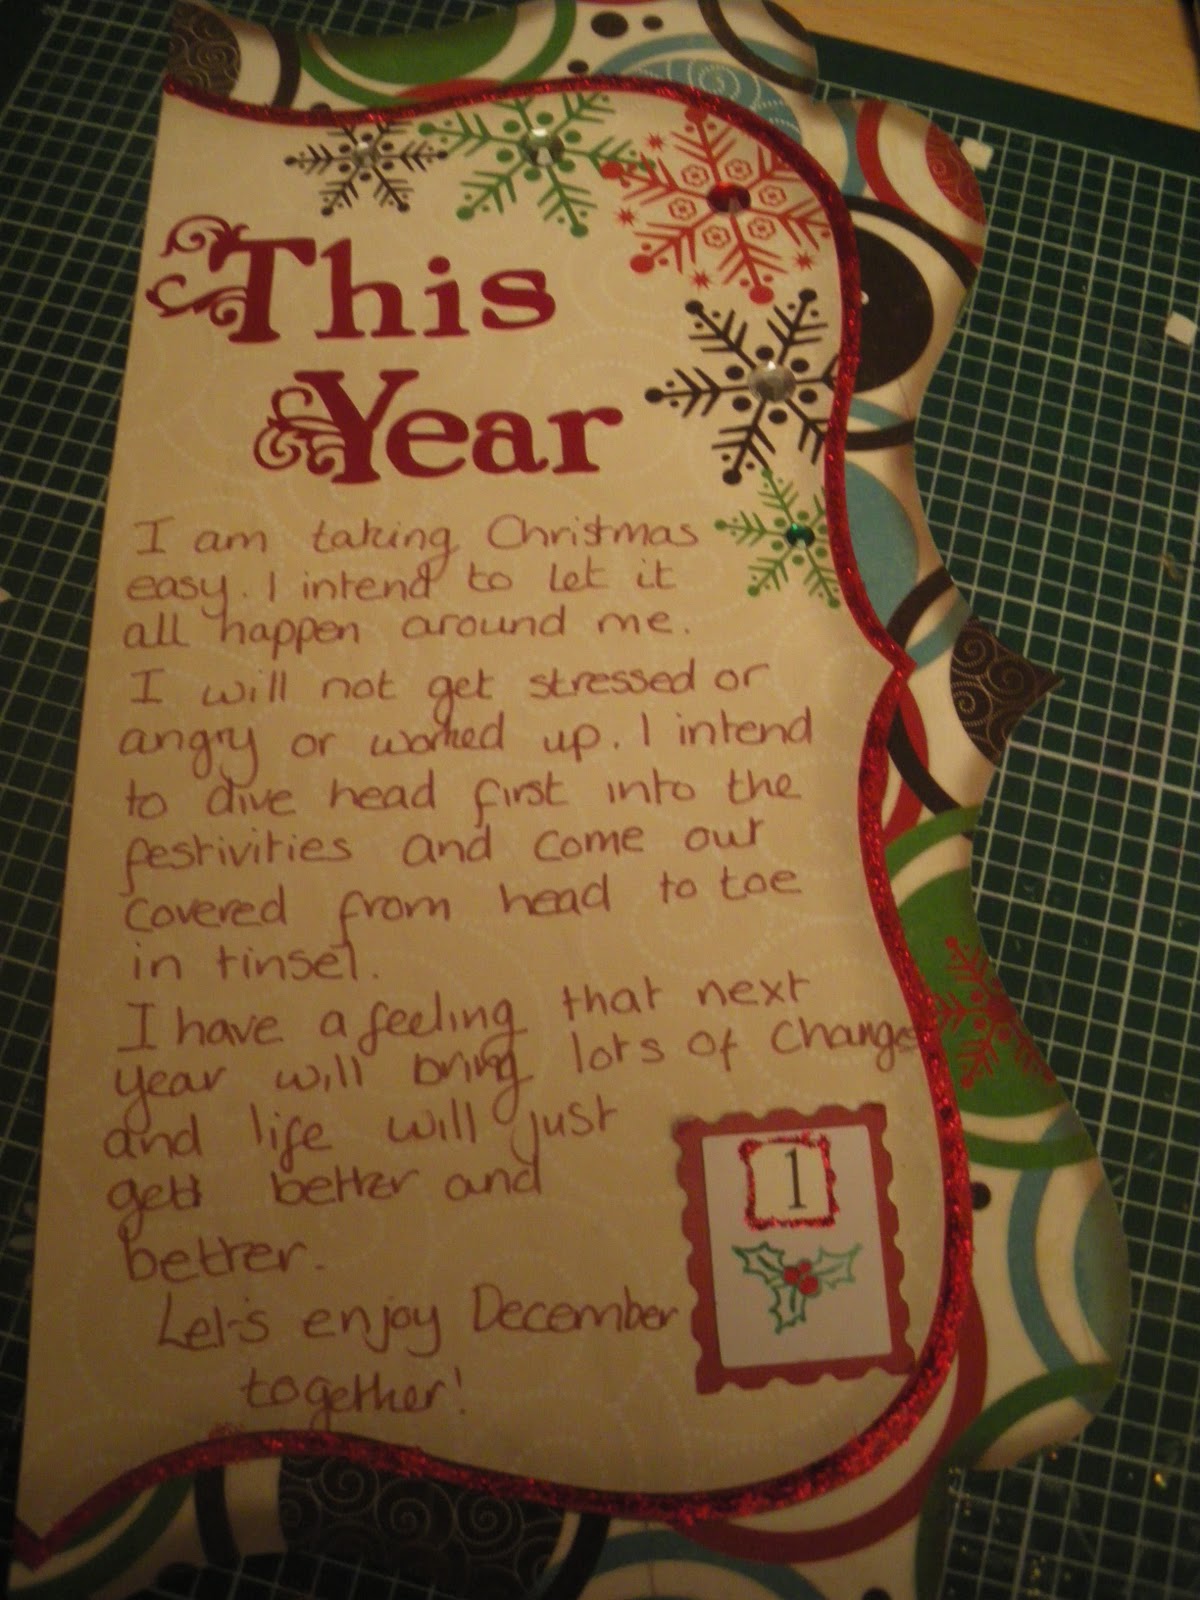 This
Year
I am taking Christmas
easy. I intend to let it
all happen around me.
I will not get stressed or
angry or worked up. I intend
to dive head first into the
festivities and come out
covered from head to toe
in tinsel.
I have a feeling that next
year will bring lots of change
and life will just
get better and
better.
Let's enjoy December
together!
1